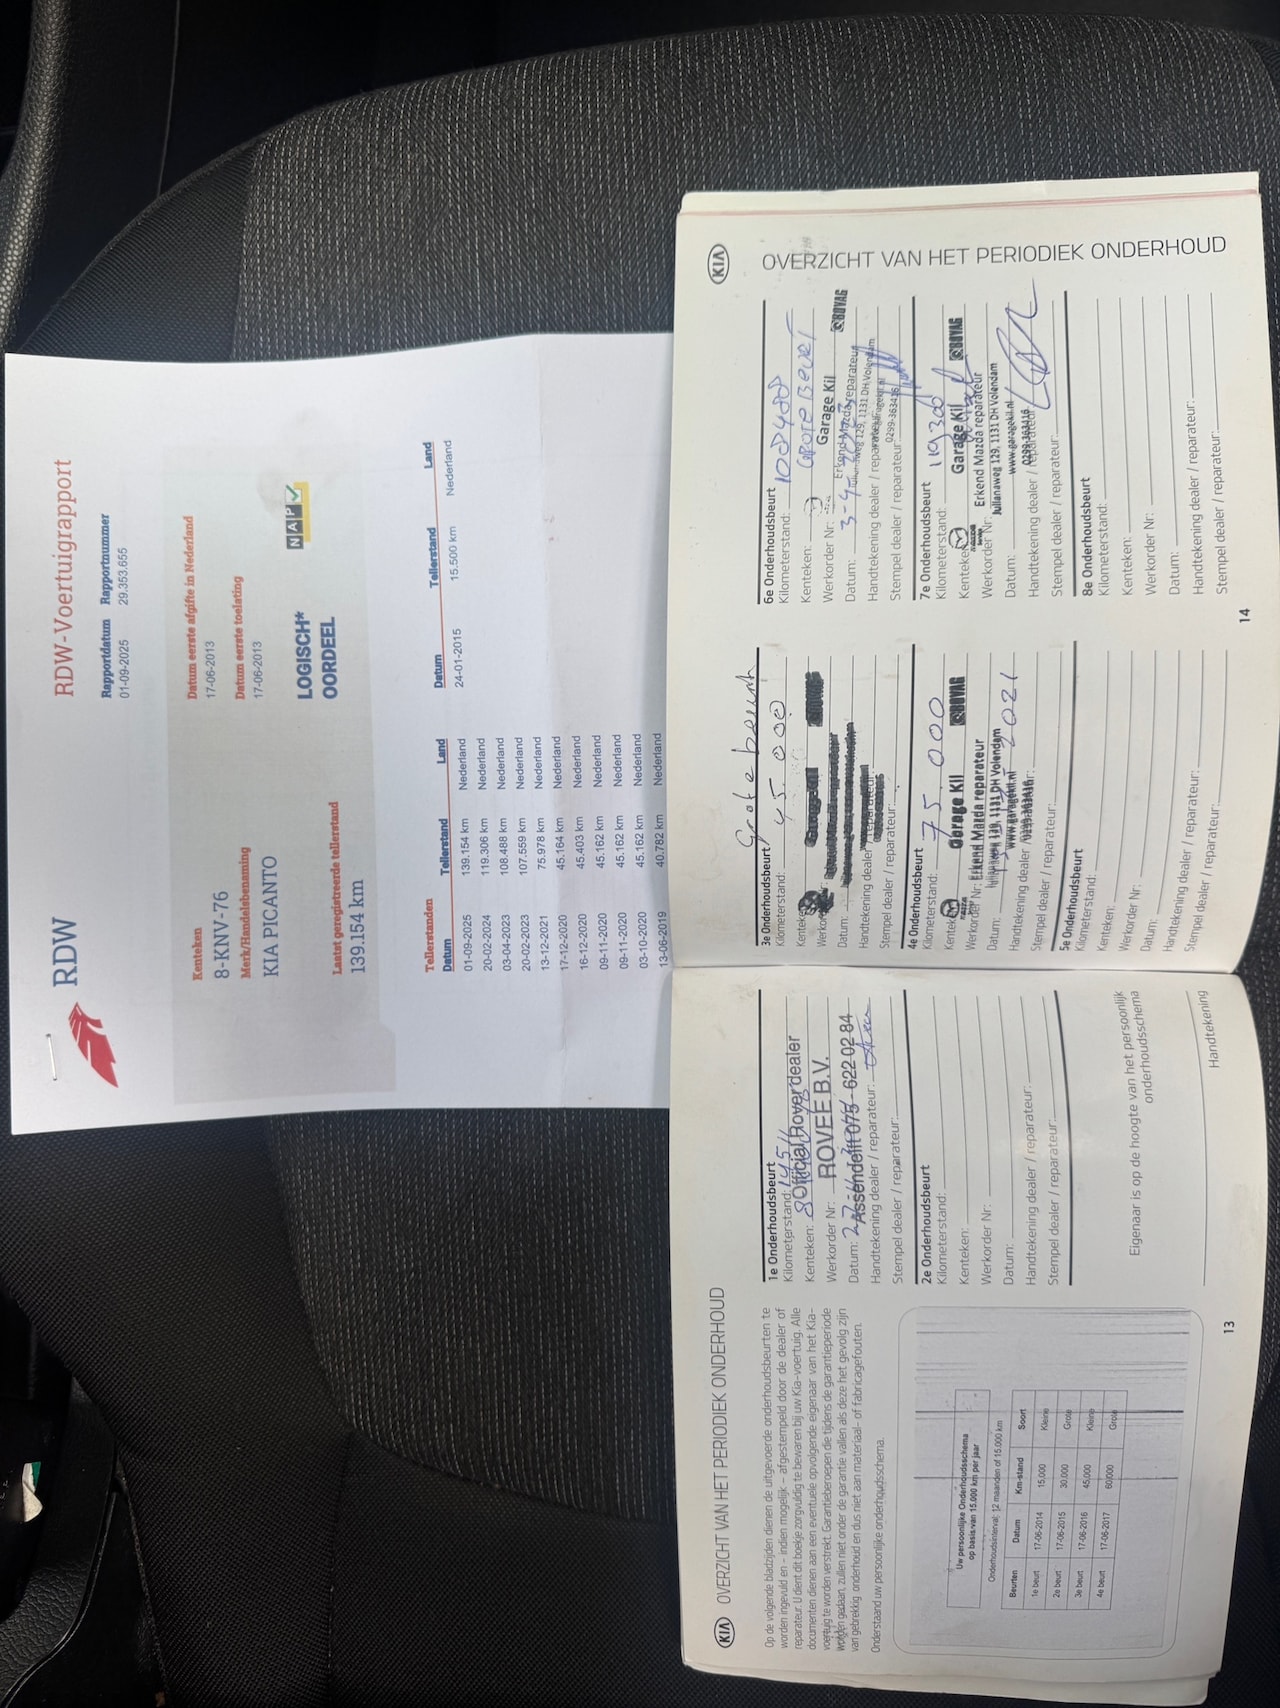 RDW
RDW-Voertuigrapport
Rapportdatum Rapportnummer
01-09-2025 29.353.655
Kenteken
8-KNV-76
Merk/Handelsbenaming
KIA PICANTO
Datum eerste afgifte in Nederland
17-06-2013
Datum eerste toelating
17-06-2013
Laatst geregistreerde tellerstand
139.154 km
LOGISCH*
OORDEEL
NAP
Tellerstanden
Datum Tellerstand Land Datum Tellerstand Land
01-09-2025 139.154 km Nederland 24-01-2015 15.500 km Nederland
20-02-2024 119.306 km Nederland
03-04-2023 108.488 km Nederland
20-02-2023 107.559 km Nederland
13-12-2021 75.978 km Nederland
17-12-2020 45.164 km Nederland
16-12-2020 45.403 km Nederland
09-11-2020 45.162 km Nederland
09-11-2020 45.162 km Nederland
03-10-2020 45.162 km Nederland
13-06-2019 40.782 km Nederland
KIA OVERZICHT VAN HET PERIODIEK ONDERHOUD
Op de volgende bladzijden dienen de uitgevoerde onderhoudsbeurten te
worden ingevuld en - indien mogelijk - afgestempeld door de dealer of
reparateur. U dient dit boekje zorgvuldig te bewaren bij uw Kia-voertuig. Alle
documenten dienen aan een eventuele opvolgende eigenaar van het Kia-
voertuig te worden verstrekt. Garantieberoepen die tijdens de garantieperiode
worden gedaan, zullen niet onder de garantie vallen als deze het gevolg zijn
van gebrekkig onderhoud en dus niet aan materiaal- of fabricagefouten.
Onderstaand uw persoonlijke onderhoudsschema.
Uw persoonlijke Onderhoudsschema
op basis van 15.000 km per jaar
Onderhoudsinterval: 12 maanden of 15.000 km
Beurten Datum Km-stand Soort
1e beurt 17-06-2014 15,000 Kleine
2e beurt 17-06-2015 30,000 Grote
3e beurt 17-06-2016 45,000 Kleine
4e beurt 17-06-2017 60,000 Grote
13
1e Onderhoudsbeurt
Kilometerstand:
Kenteken:
Official Rover dealer
Werkorder Nr:
ROVEE B.V.
Datum:
Assendelft 075 - 622 02 84
Handtekening dealer / reparateur:
Stempel dealer / reparateur:
2e Onderhoudsbeurt
Kilometerstand:
Kenteken:
Werkorder Nr:
Datum:
Handtekening dealer / reparateur:
Stempel dealer / reparateur:
Eigenaar is op de hoogte van het persoonlijk
onderhoudsschema
Handtekening
KIA OVERZICHT VAN HET PERIODIEK ONDERHOUD
3e Onderhoudsbeurt Grote beurt
Kilometerstand: 45 000
Kenteken
Garage Kil
Datum:
Handtekening dealer
Stempel dealer / reparateur:
4e Onderhoudsbeurt
Kilometerstand: 75.000
Garage Kil BOVAG
Werkorder Nr: Erkend Mazda reparateur
Julianaweg 129, 1131 DH Volendam
Datum: 2021
www.garagekil.nl
Handtekening dealer / reparateur:
0299-363416
Stempel dealer / reparateur:
5e Onderhoudsbeurt
Kilometerstand:
Kenteken:
Werkorder Nr:
Datum:
Handtekening dealer / reparateur:
Stempel dealer / reparateur:
6e Onderhoudsbeurt
Kilometerstand: 108488
Kenteken: Grote Beurt
Werkorder Nr: Garage Kil BOVAG
Erkend Mazda reparateur
Datum:
Julianaweg 129, 1131 DH Volendam
Handtekening dealer / reparateur:
www.garagekil.nl
0299-363416
Stempel dealer / reparateur:
7e Onderhoudsbeurt
Kilometerstand: 119300
Kenteken
Garage Kil BOVAG
Erkend Mazda reparateur
Werkorder Nr:
Julianaweg 129, 1131 DH Volendam
Datum:
www.garagekil.nl
Handtekening dealer / reparateur
0299-363416
Stempel dealer / reparateur:
8e Onderhoudsbeurt
Kilometerstand:
Kenteken:
Werkorder Nr:
Datum:
Handtekening dealer / reparateur:
Stempel dealer / reparateur:
14